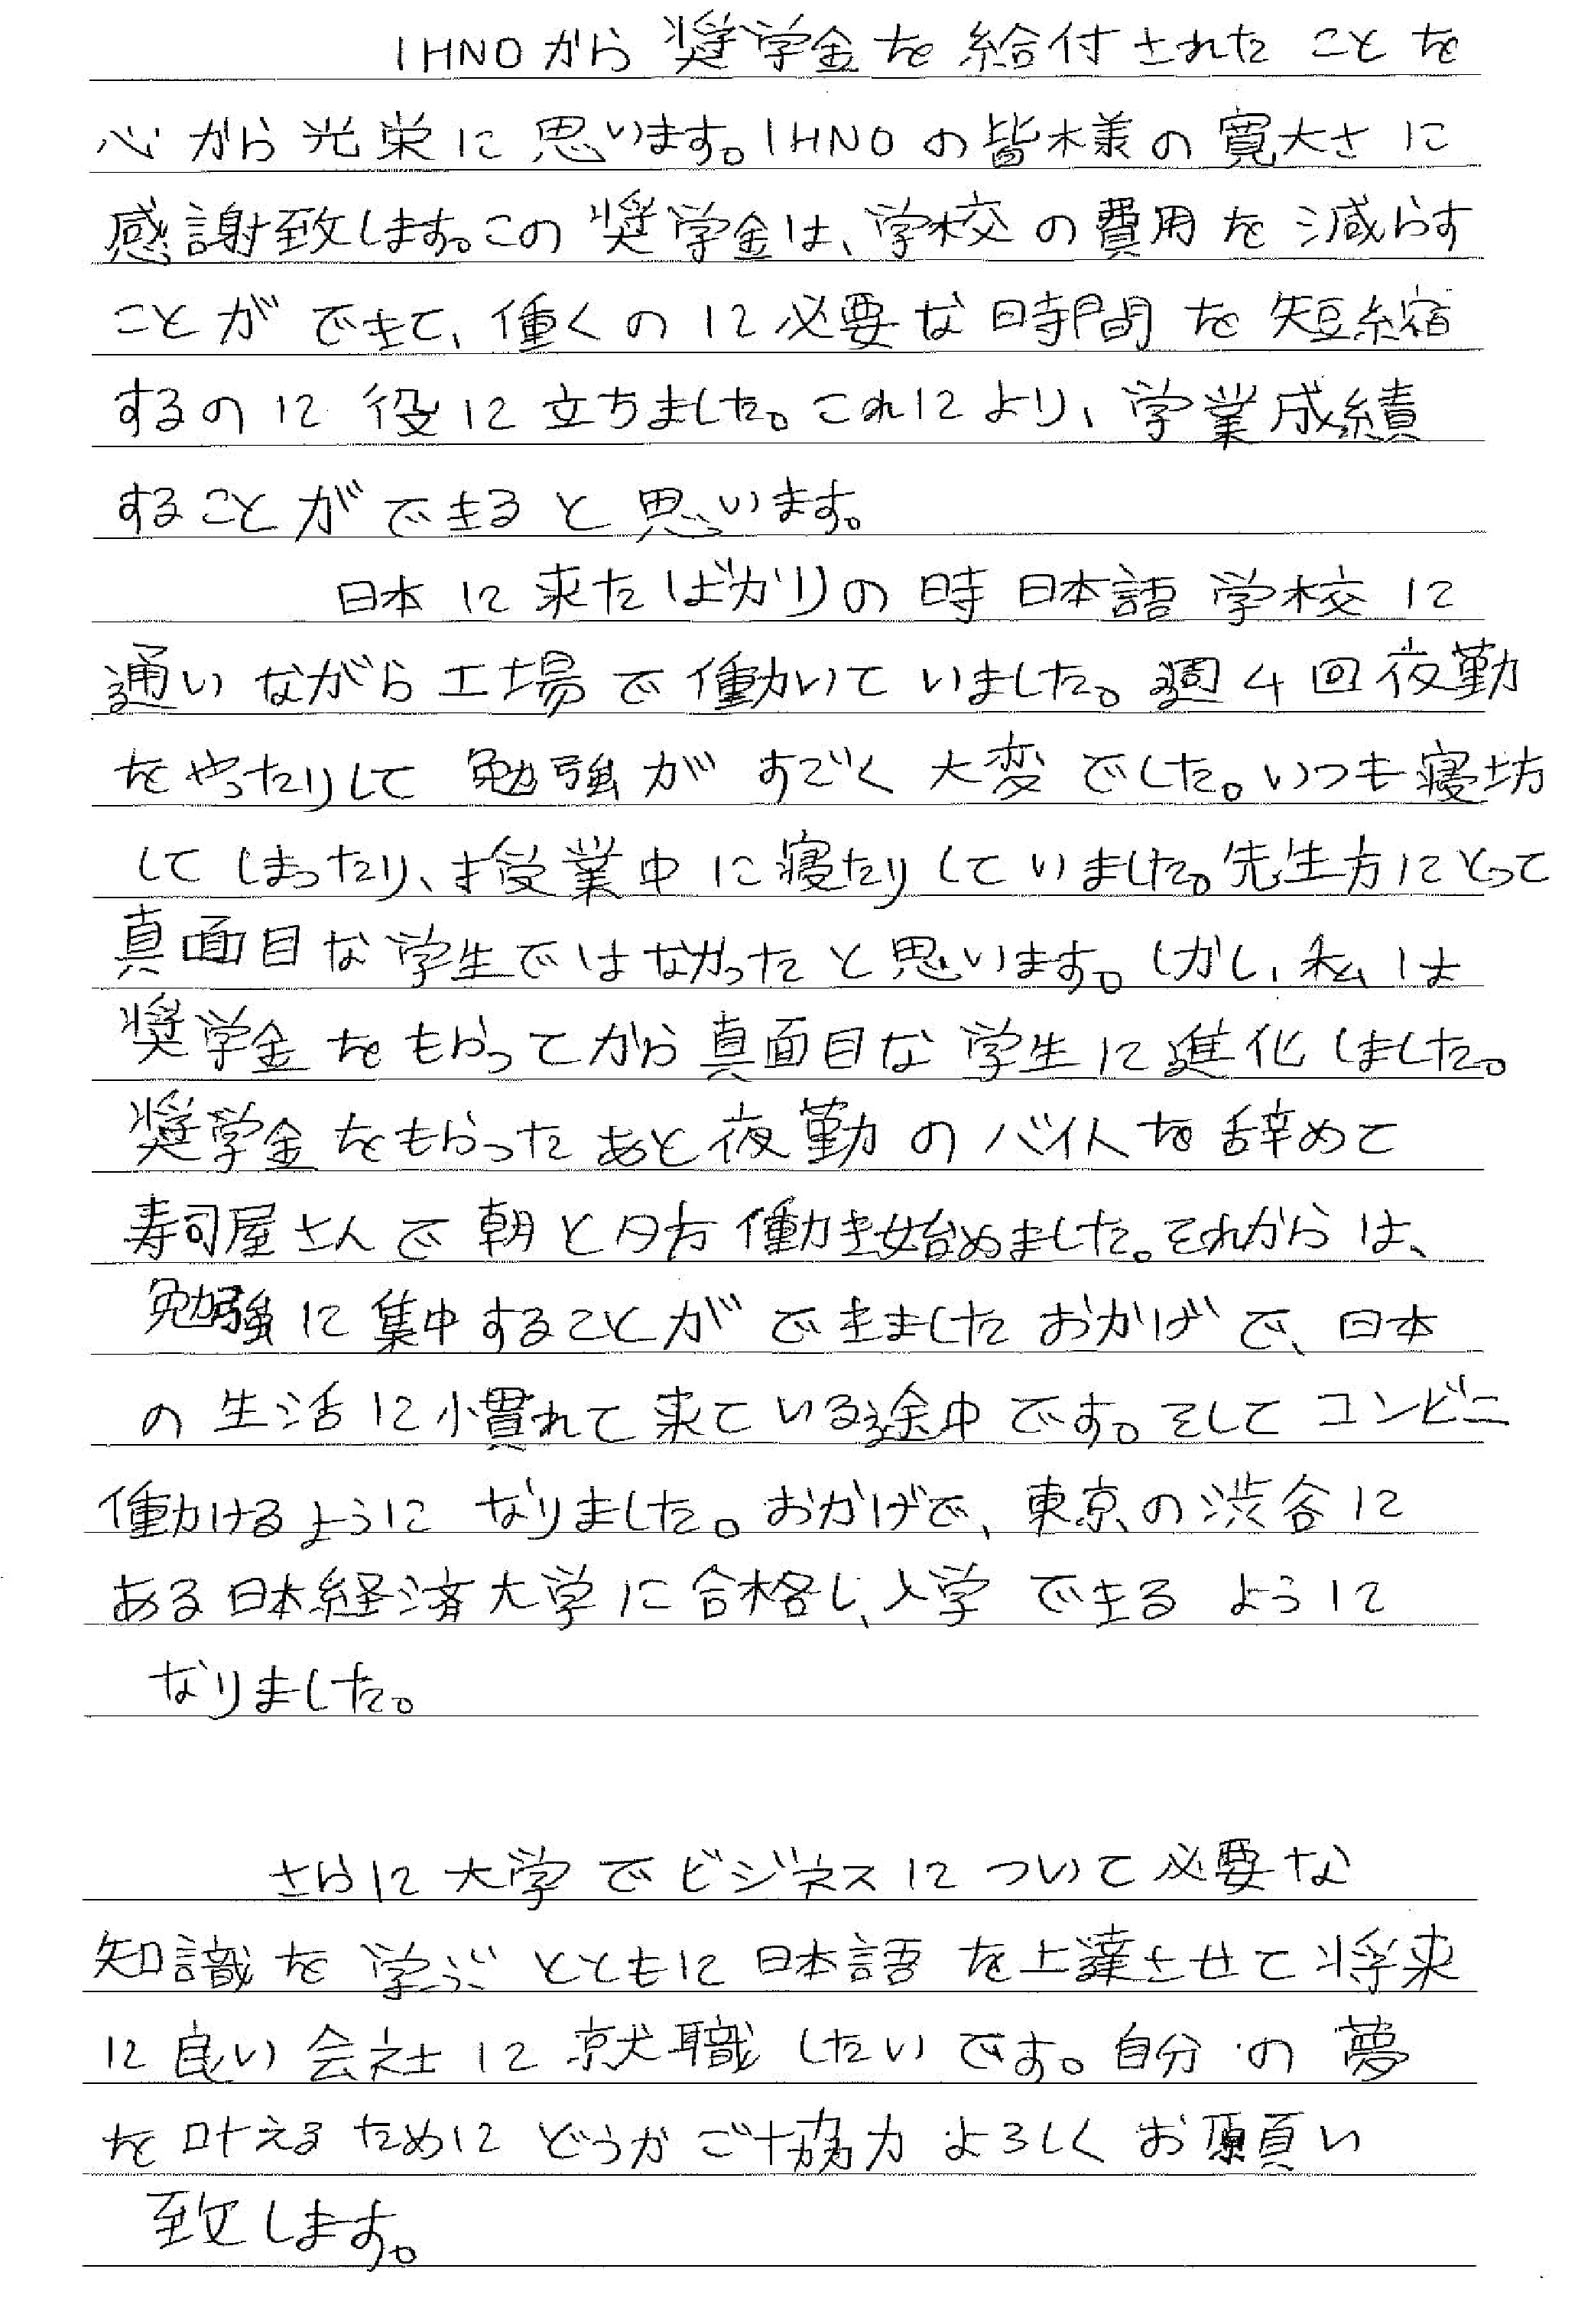 IHNOから奨学金を給付されたことを
心から光栄に思います。IHNOの皆様の寛大さに
感謝致します。この奨学金は、学校の費用を減らす
ことができて、働くのに必要な時間を短縮
するのに役に立ちました。これにより、学業成績
することができると思います。
日本に来たばかりの時日本語学校に
通いながら工場で働いていました。週4回夜勤
をやったりして勉強がすごく大変でした。いつも寝坊
してしまったり、授業中に寝たりしていました。先生方にとって
真面目な学生ではなかったと思います。しかし、私は
奨学金をもらってから真面目な学生に進化しました。
奨学金をもらったあと夜勤のバイトを辞めて
寿司屋さんで朝と夕方働き始めました。それからは、
勉強に集中することができましたおかげで、日本
の生活に慣れて来ている途中です。そしてコンビニ
働けるようになりました。おかげで、東京の渋谷に
ある日本経済大学に合格し、入学できるように
なりました。
さらに大学でビジネスについて必要な
知識を学ぶとともに日本語を上達させて将来
に良い会社に就職したいです。自分の夢
を叶えるためにどうかご協力よろしくお願い
致します。